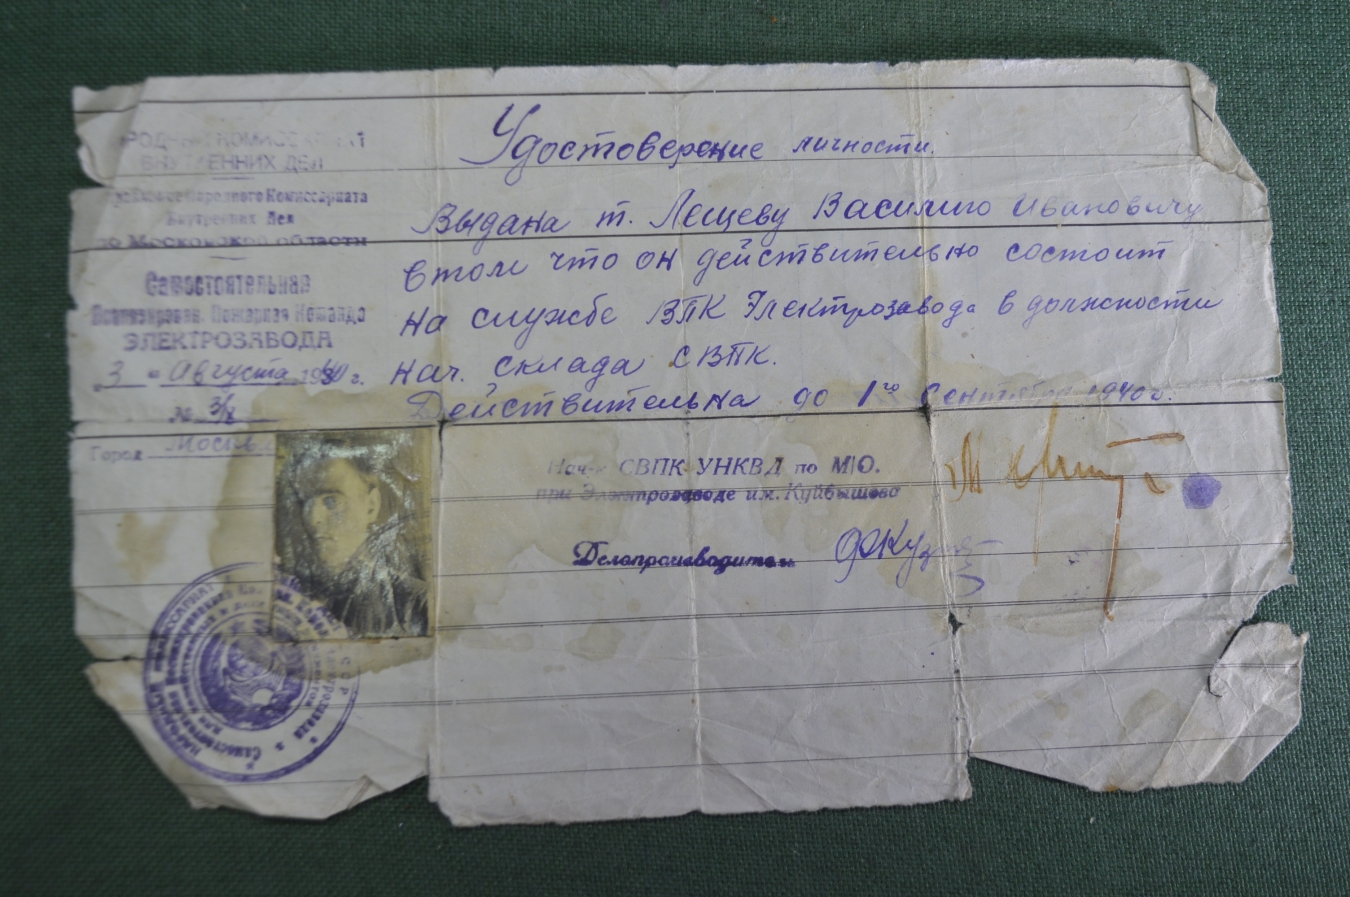 НАРОДНЫЙ КОМИССАРИАТ
ВНУТРЕННИХ ДЕЛ
Народного Комиссариата
Внутрених Дел
по Московской области
Самостоятельная
Пожарная Команда
ЭЛЕКТРОЗАВОДА
"3" Августа 1940 г.
№ 3/8
Город Москва
Удостоверение личности.
Выдана т. Лещеву Василию Ивановичу
в том что он действительно состоит
на службе ВПК Электрозавода в должности
нач. склада СВПК.
Действительна до 1го Сентября 1940 г.
Нач-к СВПК УНКВД по М/О.
при Электрозаводе им. Куйбышева
Делопроизводитель